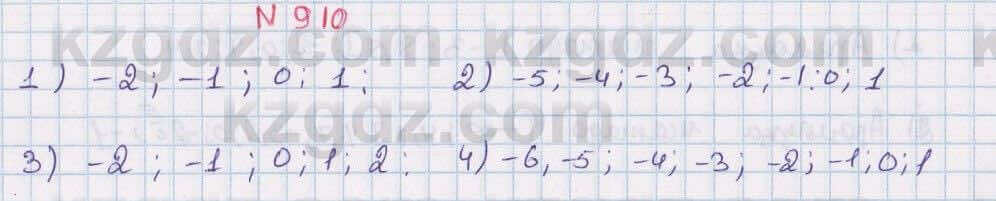 N 910
1) -2; -1; 0; 1; 2) -5; -4; -3; -2; -1; 0; 1
3) -2; -1; 0; 1; 2; 4) -6, -5; -4; -3; -2; -1; 0; 1
kzgdz.com
kzgdz.com